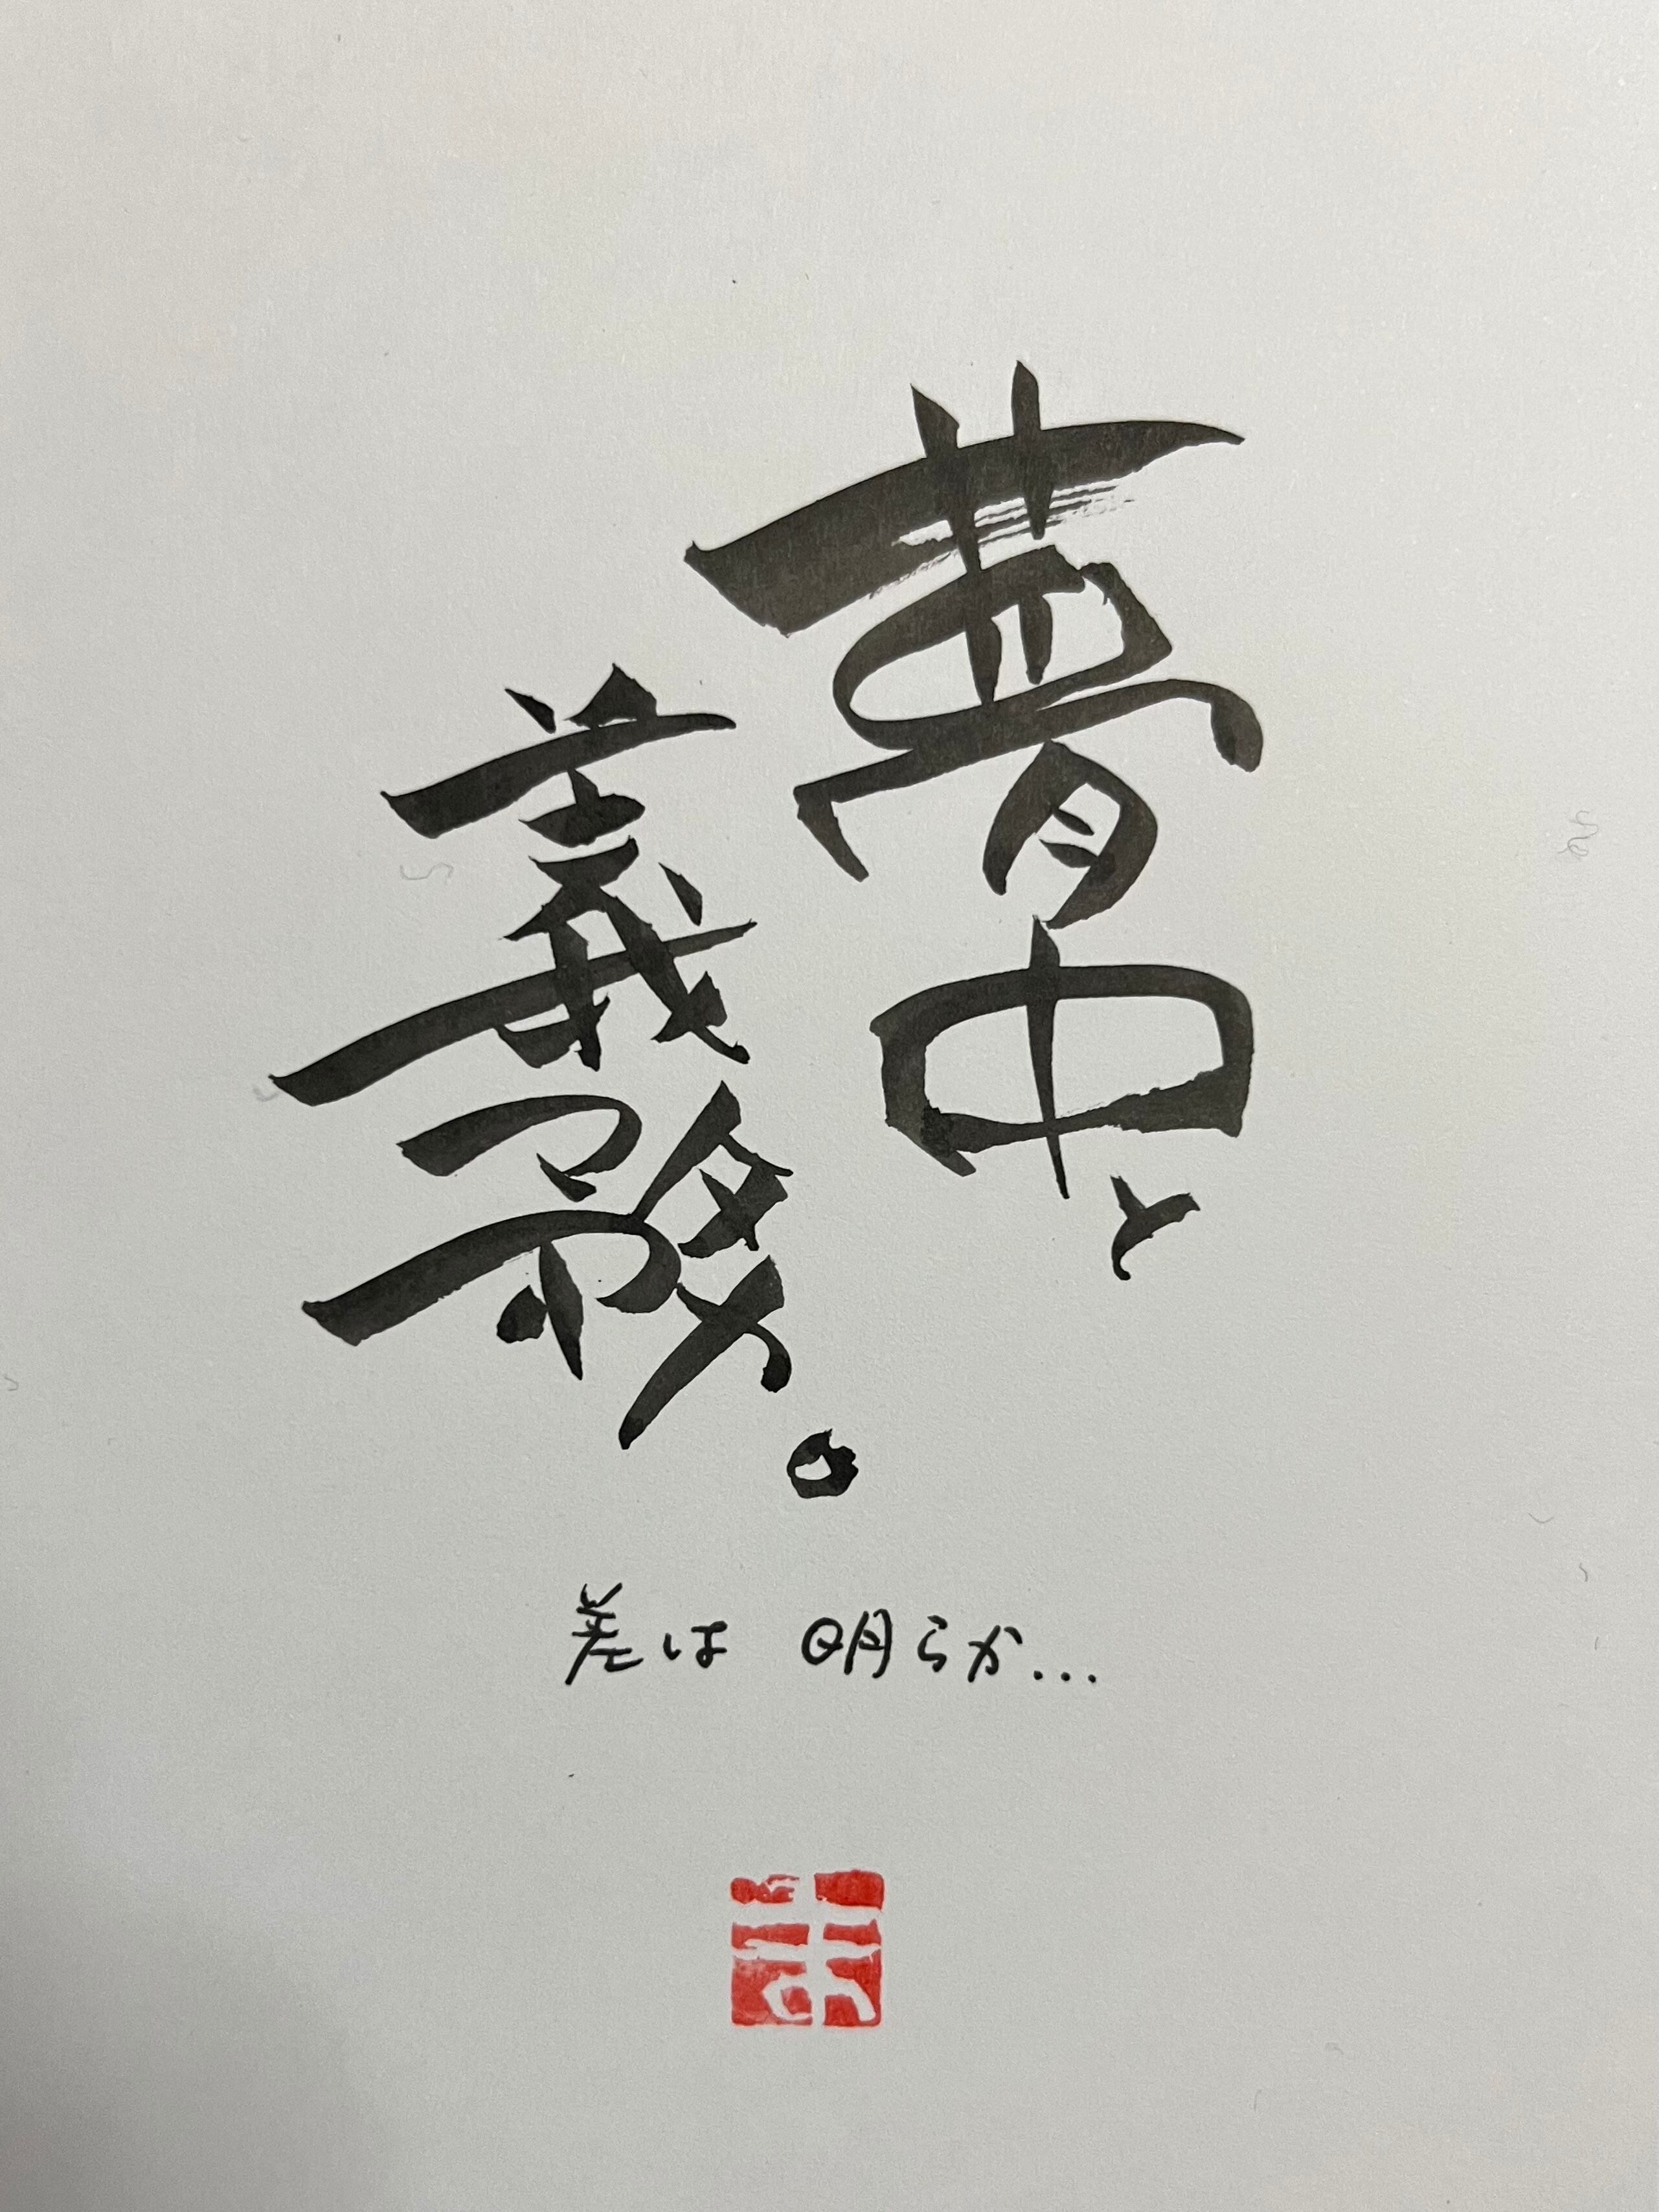 夢中と
義務。
差は 明らか...
ま